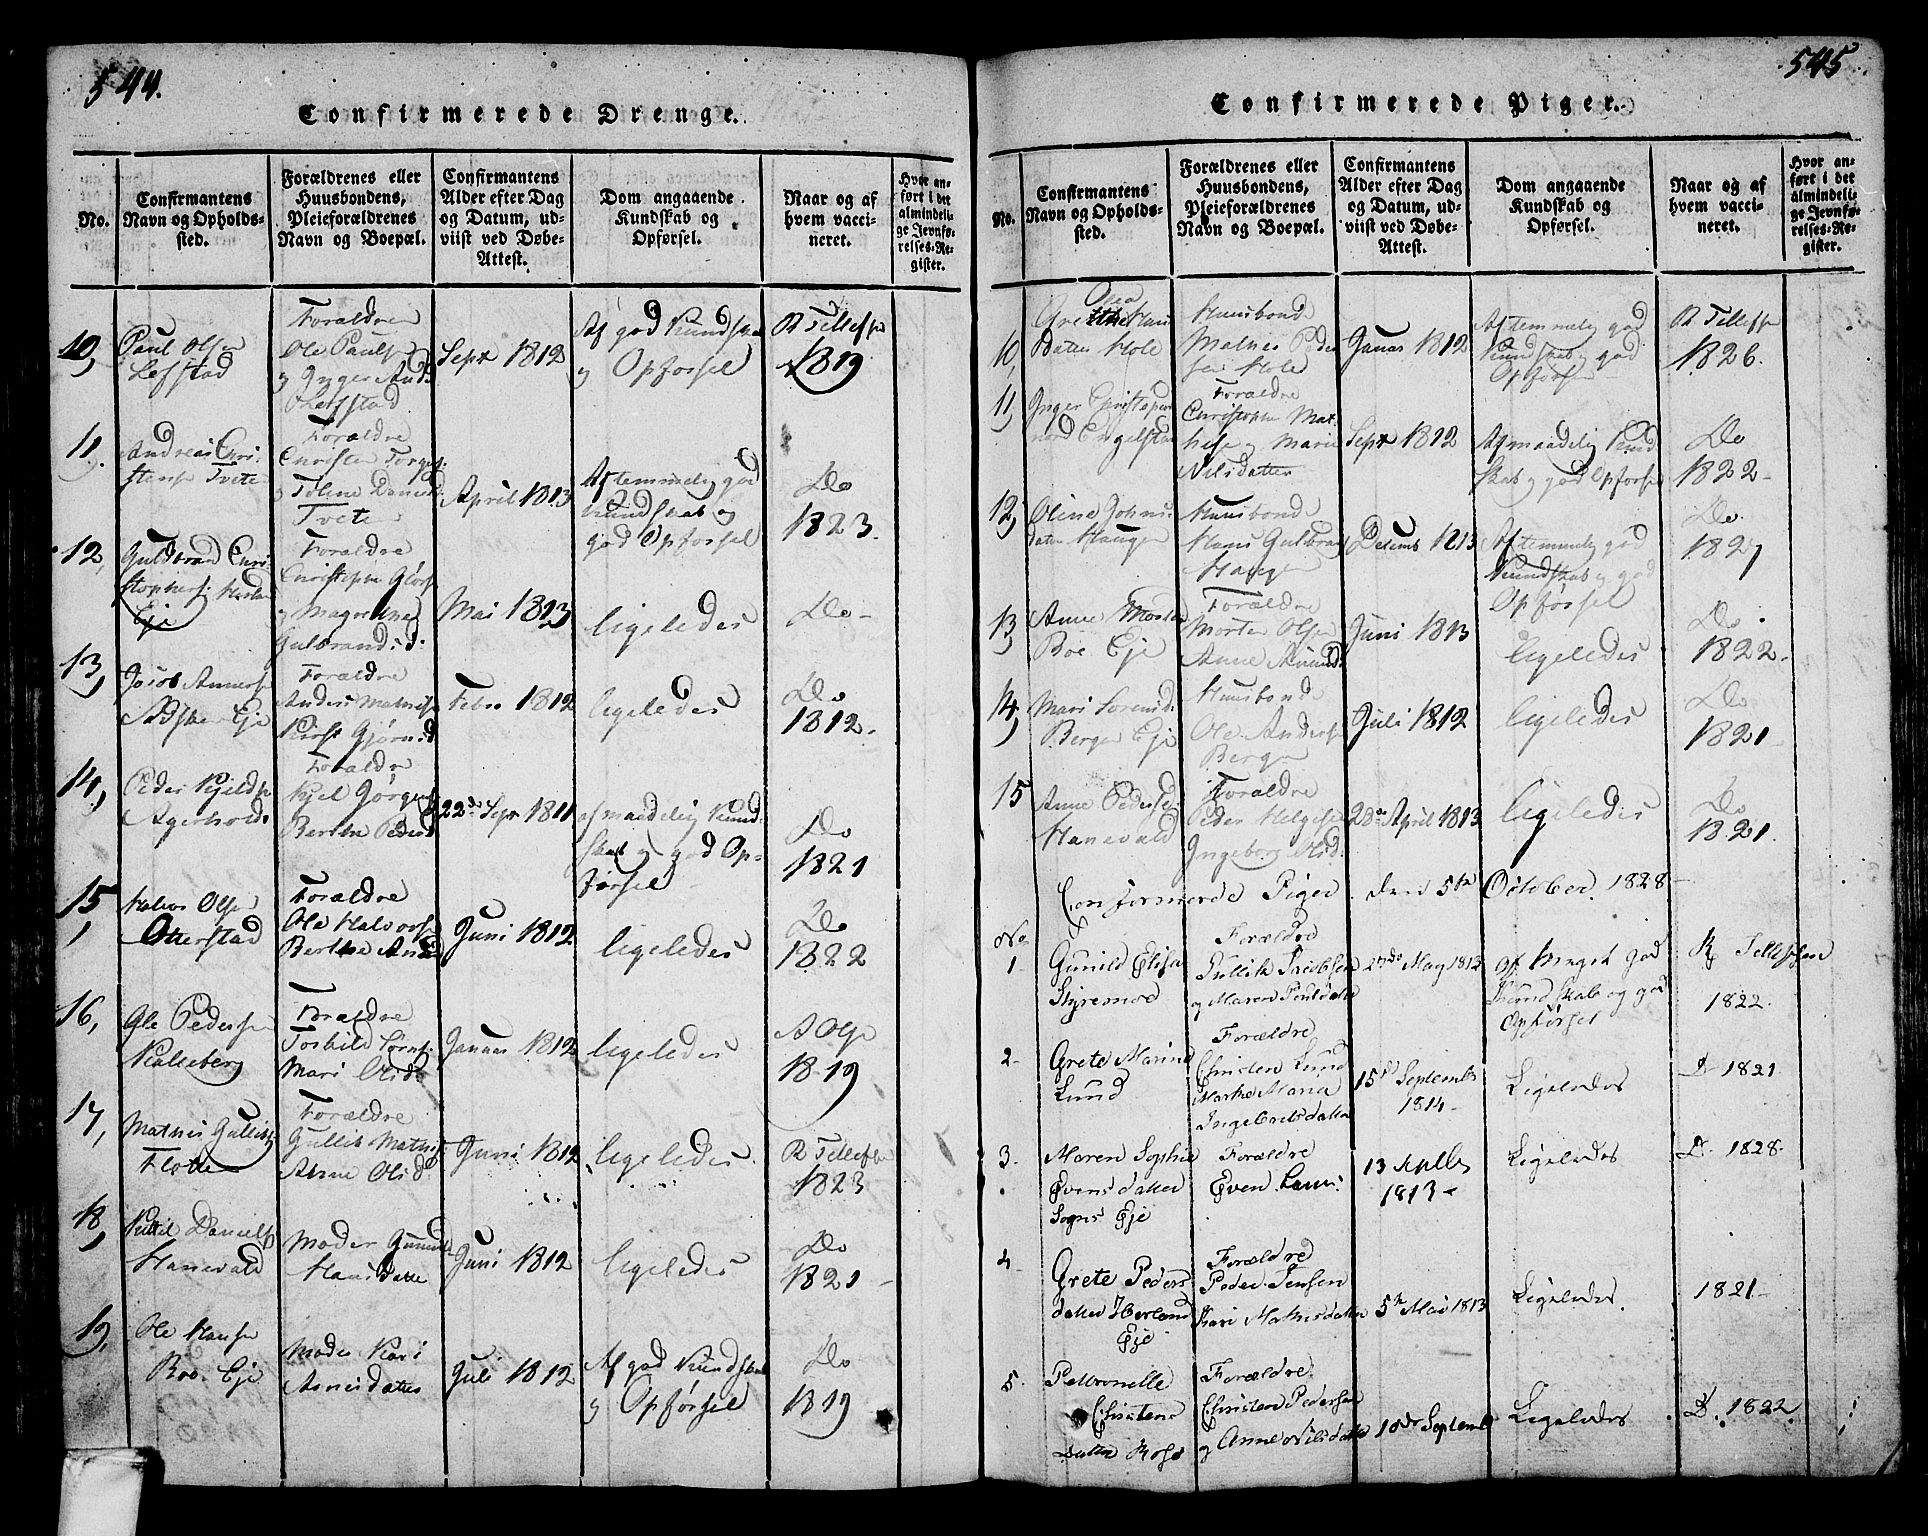 544.
Confirmerede Drenge.
No.
Confirmantens
Navn og Opholds-
sted.
Forældrenes eller
Huusbondens,
Pleieforældrenes
Navn og Boepæl.
Confirmantens
Alder efter Dag
og Datum, ud-
viist ved Døbe-
Attest.
Dom angaaende
Kundskab og
Opførsel.
Naar og af
hvem vacci-
neret.
Hvor an-
ført i det
almindeli-
ge Jevnfø-
relses-Re-
gister.
10,
Paul Olsen
Lefstad
Forældre
Ole Pauls
og Inger And
Sept 1812
Af god Kundska
og Opførsel
R Tellefse
1819
11,
Andreas Chri-
stense Tvete
Forældre
Christen
Tvete
April 1813
Af temmelig god
Kundskab og
god Opførsel
Do
1823.
12,
Guldbran Chri-
Eje
Forældre
Gulbrandsd:
Mai 1813
ligeledes
Do -
13,
Jacob Anderse
Eje
Forældre
Anders Mathis
Febr 1812
ligeledes
Do
1812.
14,
Peder Kjelds
Agerholt
Forældre
Kjel Jørgens
Berthe Pedersd
22de Sept 1811
af maadelig Kund-
skab og god Op-
førsel
Do
1821
15,
Halvor Olsen
Otterstad
Forældre
Ole Halvors
Berthe And
Juni 1812
ligeledes
Do
1822
16,
Ole Pederse
Kalleberg
Forældre
Mari Olsd
Januar 1812
ligeledes
A Olse
1819
17,
Mathis Gulliks
Flote
Forældre
Gullik Mathis
Anne Olsd
Juni 1812
ligeledes
R Tellefse
1823
18,
Daniels
Hanevald
Moder Gunild
Hansdatte
Juni 1812
ligeledes
Do
1821 -
19,
Ole Hanse
Boe Eje
Moder Kari
Juli 1812
Af god Kundskab
og Opførsel
Do
1819
545
Confirmerede Piger.
No.
Confirmantens
Navn og Opholds-
sted.
Forældrenes eller
Huusbondens,
Pleieforældrenes
Navn og Boepæl.
Confirmantens
Alder efter Dag
og Datum, ud-
viist ved Døbe-
Attest.
Dom angaaende
Kundskab og
Opførsel.
Naar og af
hvem vacci-
neret.
Hvor an-
ført i det
almindeli-
ge Jevnfø-
relses-Re-
gister.
10,
Hans
Datter Hole
Huusbonde
Mathes Peder
sen Hole
Januar 1812
Af temmelig god
Kundskab og god
Opførsel
R Tellefse
1826.
11,
Inger Christopher
Engelstad
Forældre
Christopher Mat-
hese og Marie
Nilsdatter
Sept 1812
Af maadelig Kund
skab og god Opførsel
Do
1822 -
12,
Oline Johns
datter Haugen
Huusbonde
Hans Gulbrand
Haugen
Decemb 1813
Af temmelig god
Kundskab og god
Opførsel
Do
1827
13,
Anne Morten
Boe Eje
Forældre
Morten Olsen
Anne
Juni 1813
ligeledes
Do
1822.
14,
Mari Sørensd
Berger Eje
Huusbonde
Ole Anderse
Berger
Juli 1812
ligeledes
Do
1821
15
Anne Pederse
Hanevald
Forældre
Peder Helgese
Ingeborg Olsd.
28de April 1813
ligeledes
Do
1821.
Confirmerede Piger den 5te October 1828 -
No
1
Gunild Elisa
Styremoe
Forældre
Gullik Jacobsen
og Maren Poulsdatter
May 1812
Af Meget god
Kundskab og god
Opførsel
R Tellefsen
1822.
2 -
Grete Marina
Lund
Forældre
Christen Lund
Marthe Maria
Ingebritsdatter
15de September
1814 -
Ligeledes
D 1821.
3.
Maren Sophie
Evensdatter
Sogns Eje
Forældre
Even
13
1813 -
Ligeledes
D. 1828.
4
Grete Peders
datter
Eje
Forældre
Peder Jensen
Kari Mathisdatter
5te Mai 1813
Ligeledes.
1821 -
5.
Petronelle
Christens
Datter
Forældre
Christen Pedersen
og Anne Nilsdatter
10de September
Ligeledes
D. 1822.